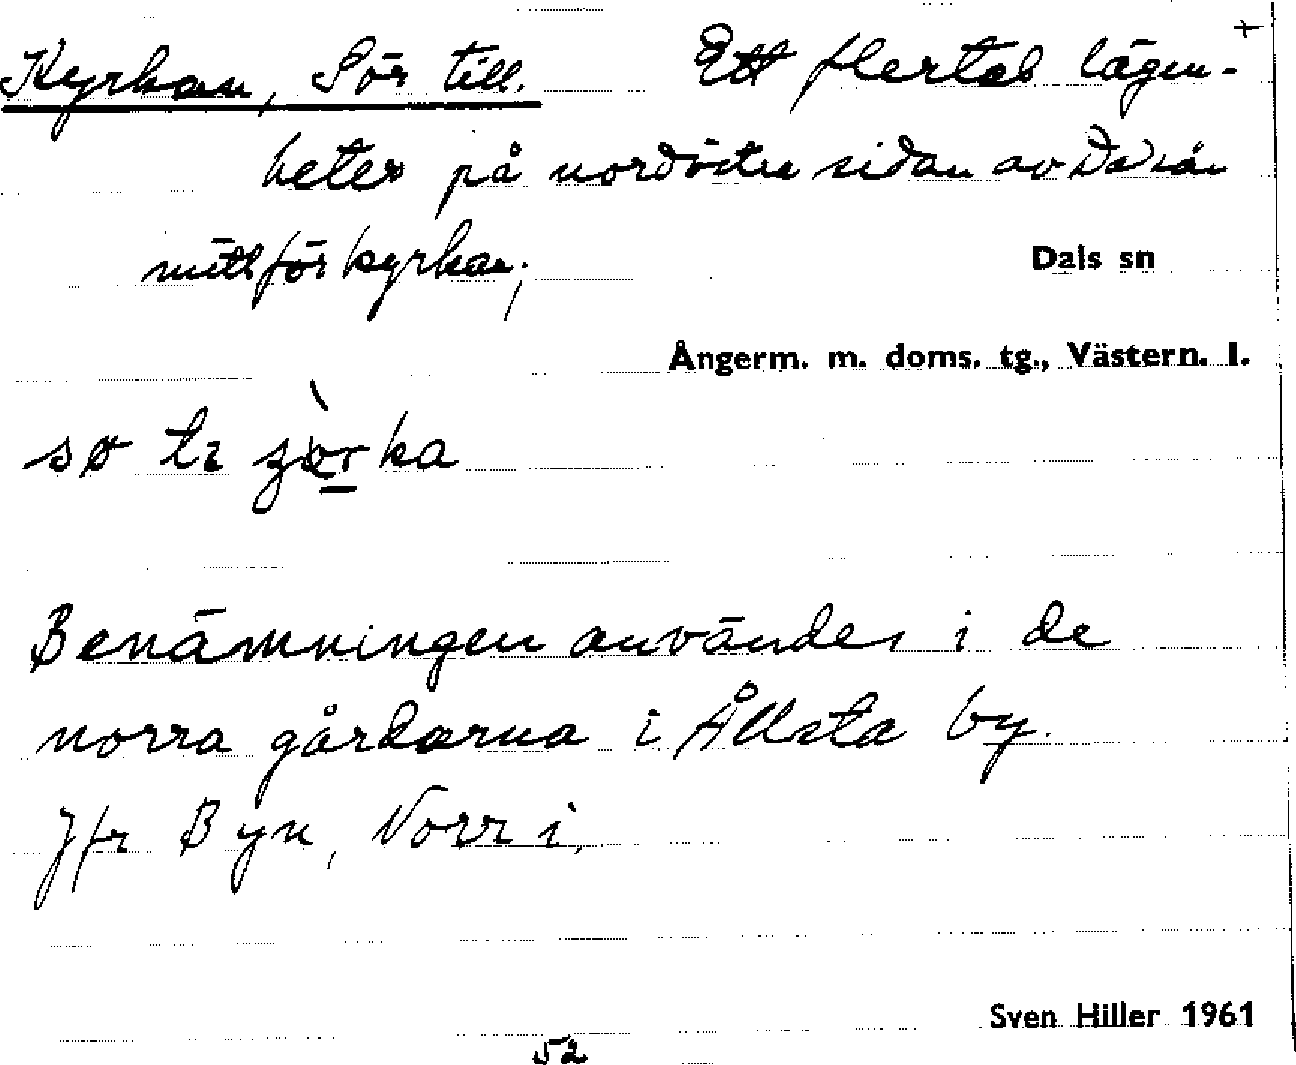 +
Kyrkan, Sör till. Ett flertal lägen-
heter på nordöstra sidan av
mitt för kyrkan;
Dals sn
Ångerm. m. doms. tg., Västern. l.
sø
Benämningen användes i de
norra gårdarna i Ållsta by.
Jfr Byn, Norr i.
Sven Hiller 1961
52